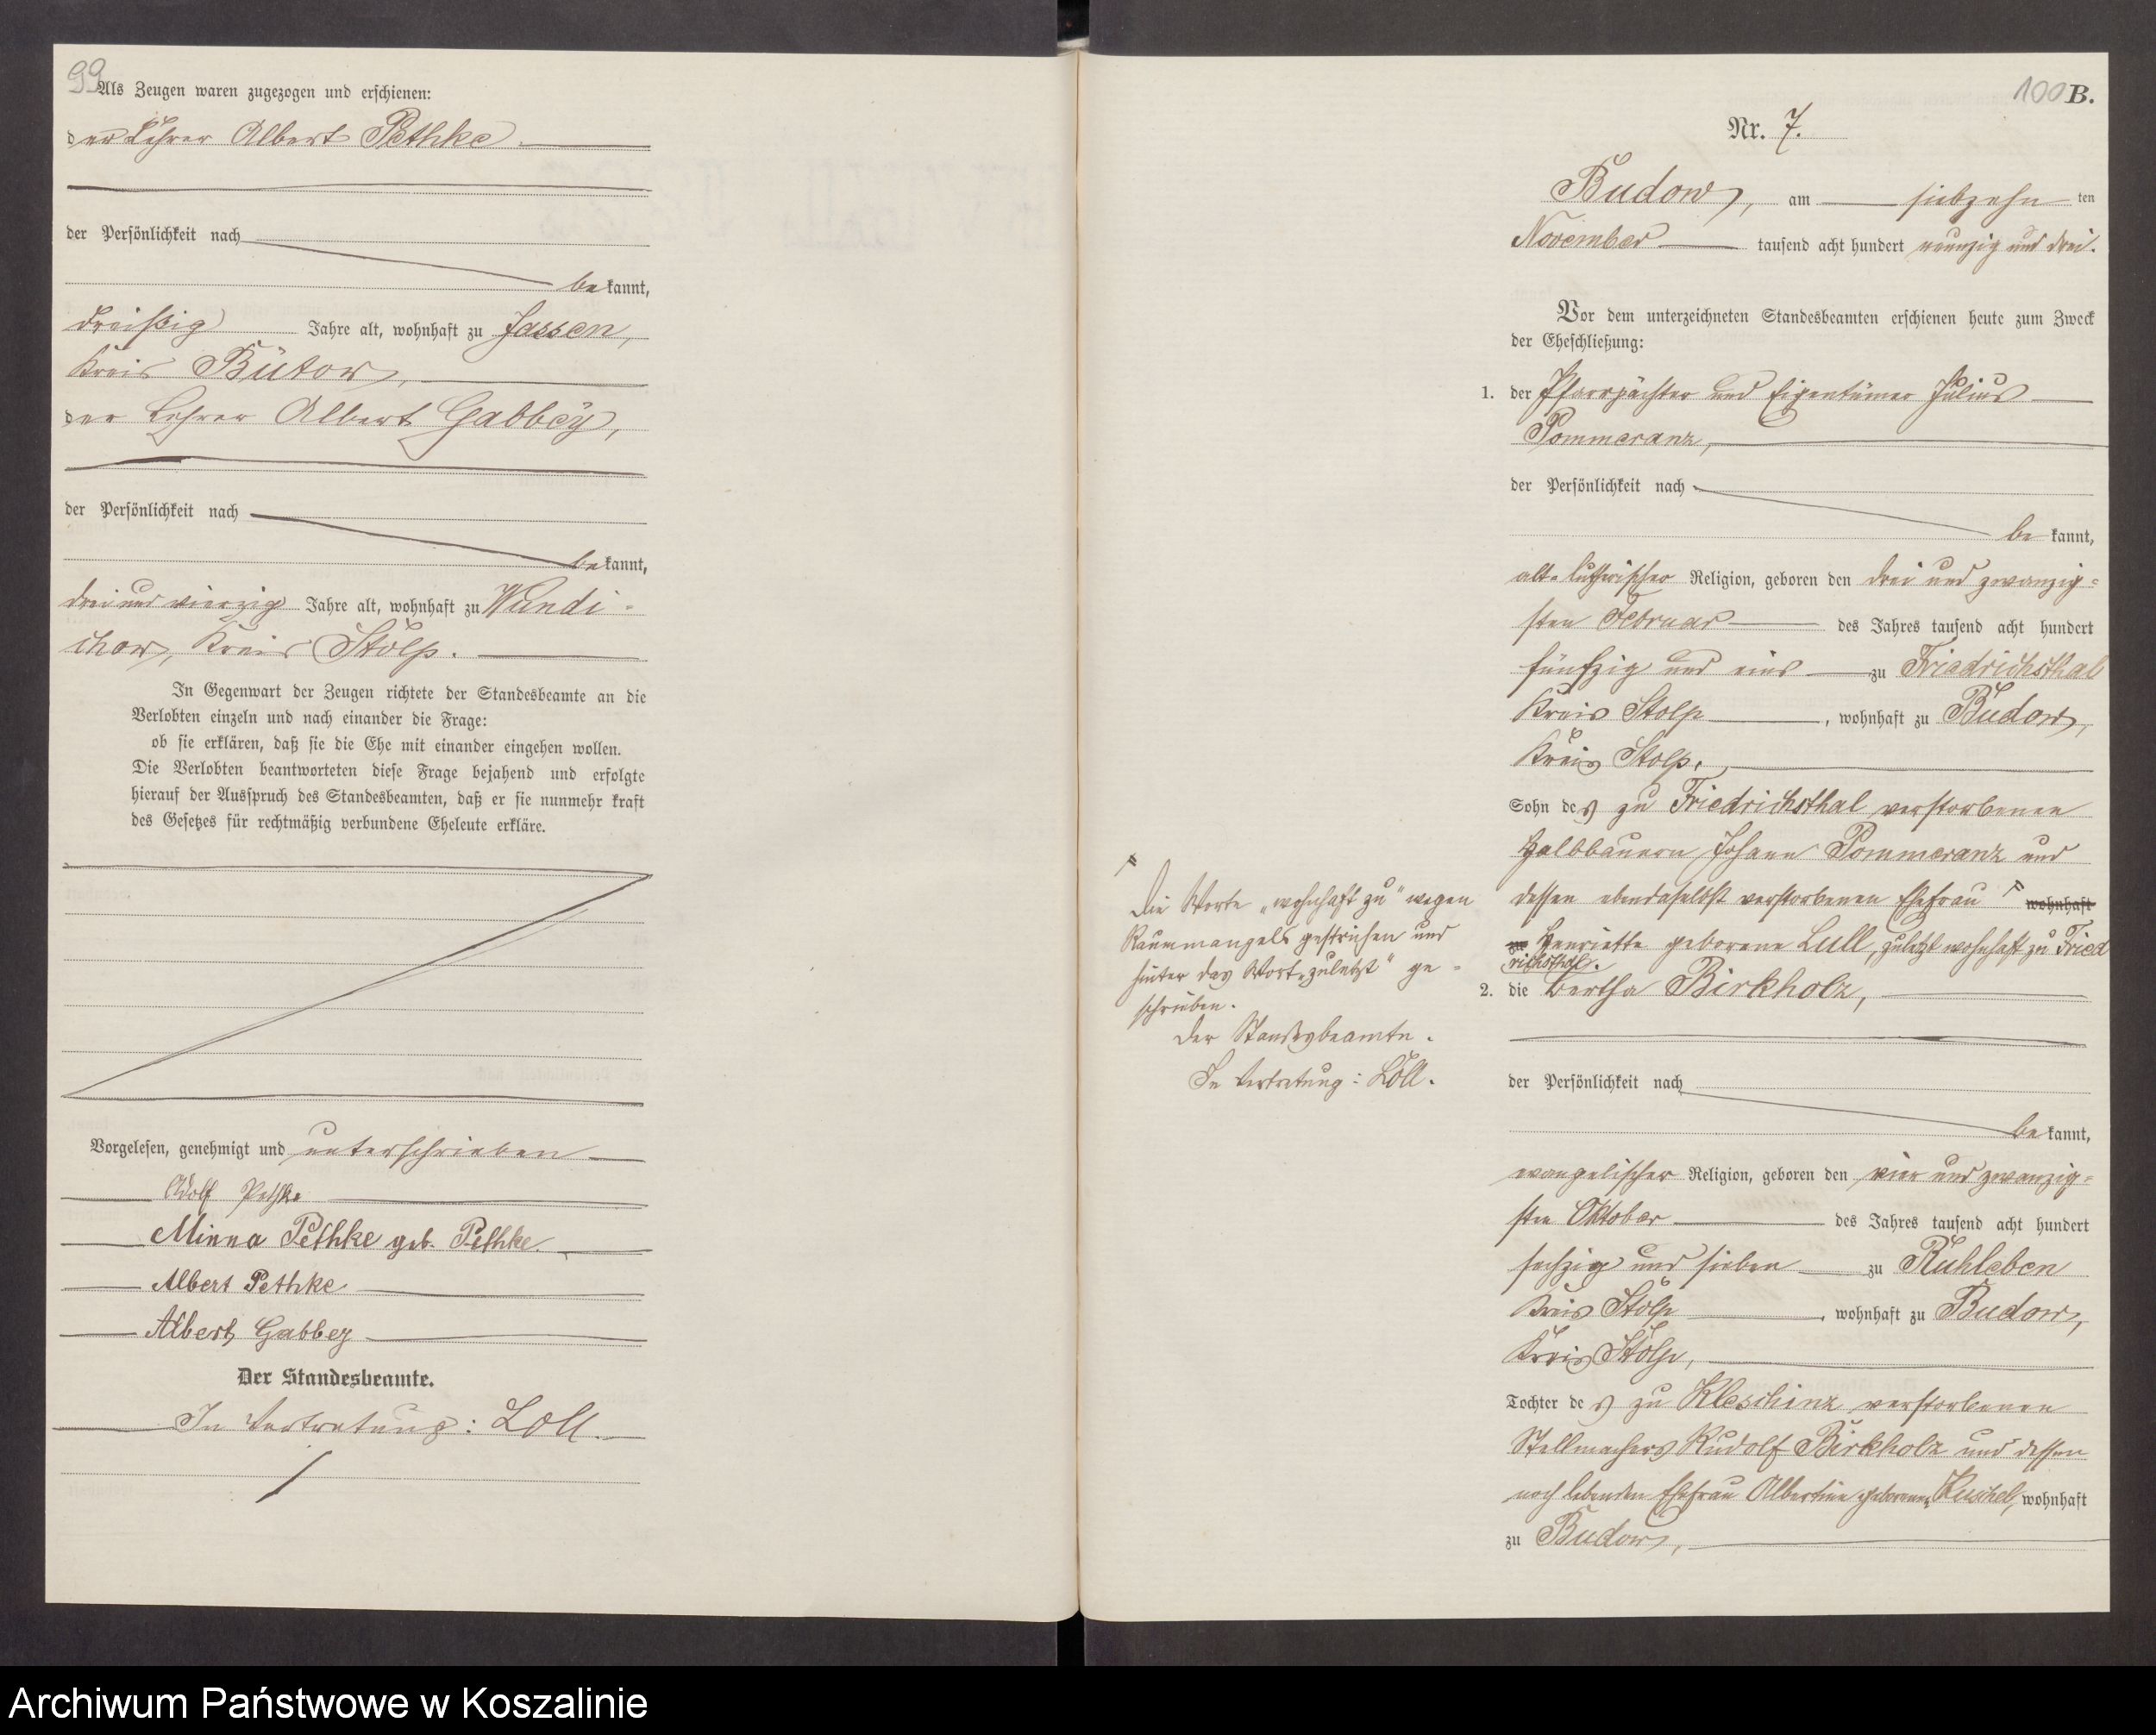 99
Als Zeugen waren zugezogen und erschienen:
der Lehrer Albert Pethke
der Persönlichkeit nach
be kannt,
dreißig Jahre alt, wohnhaft zu Jassen,
Kreis Bütow,
der Lehrer Albert Gabbey,
der Persönlichkeit nach
be kannt,
drei und vierzig Jahre alt, wohnhaft zu Wundi-
chow, Kreis Stolp.
In Gegenwart der Zeugen richtete der Standesbeamte an die
Verlobten einzeln und nach einander die Frage:
ob sie erklären, daß sie die Ehe mit einander eingehen wollen.
Die Verlobten beantworteten diese Frage bejahend und erfolgte
hierauf der Ausspruch des Standesbeamten, daß er sie nunmehr kraft
des Gesetzes für rechtmäßig verbundene Eheleute erkläre.
Vorgelesen, genehmigt und unterschrieben
Adolf Pethke
Minna Pethke geb. Pethke.
Albert Pethke
Albert Gabbey
Der Standesbeamte.
In Vertretung: Loll.
100 B.
Nr. 7.
Budow, am siebzehn ten
November tausend acht hundert neunzig und drei.
Vor dem unterzeichneten Standesbeamten erschienen heute zum Zweck
der Eheschließung:
1. der Pfarrpächter und Eigentümer Julius
Pommeranz,
der Persönlichkeit nach
be kannt,
alt-lutherischer Religion, geboren den drei und zwanzig=
sten Februar des Jahres tausend acht hundert
fünfzig und eins zu Friedrichsthal
Kreis Stolp, wohnhaft zu Budow,
Kreis Stolp.
Sohn des zu Friedrichsthal verstorbenen
Halbbauern Johann Pommeranz und
dessen ebendaselbst verstorbenen Ehefrau wohnhaft
zu Henriette geborene Lull, zuletzt wohnhaft zu Fried
richsthal.
Die Worte „wohnhaft zu“ wegen
Raummangels gestrichen und
hinter das Wort „zuletzt“ ge=
schrieben.
Der Standesbeamte.
In Vertretung: Loll.
2. die Bertha Birkholz,
der Persönlichkeit nach
be kannt,
evangelischer Religion, geboren den vier und zwanzig=
sten Oktober des Jahres tausend acht hundert
sechzig und sieben zu Ruhleben
Kreis Stolp, wohnhaft zu Budow,
Kreis Stolp,
Tochter des zu Kleschinz verstorbenen
Stellmachers Rudolf Birkholz und dessen
noch lebenden Ehefrau Albertine geborenen Kuschel, wohnhaft
zu Budow,
Archiwum Państwowe w Koszalinie